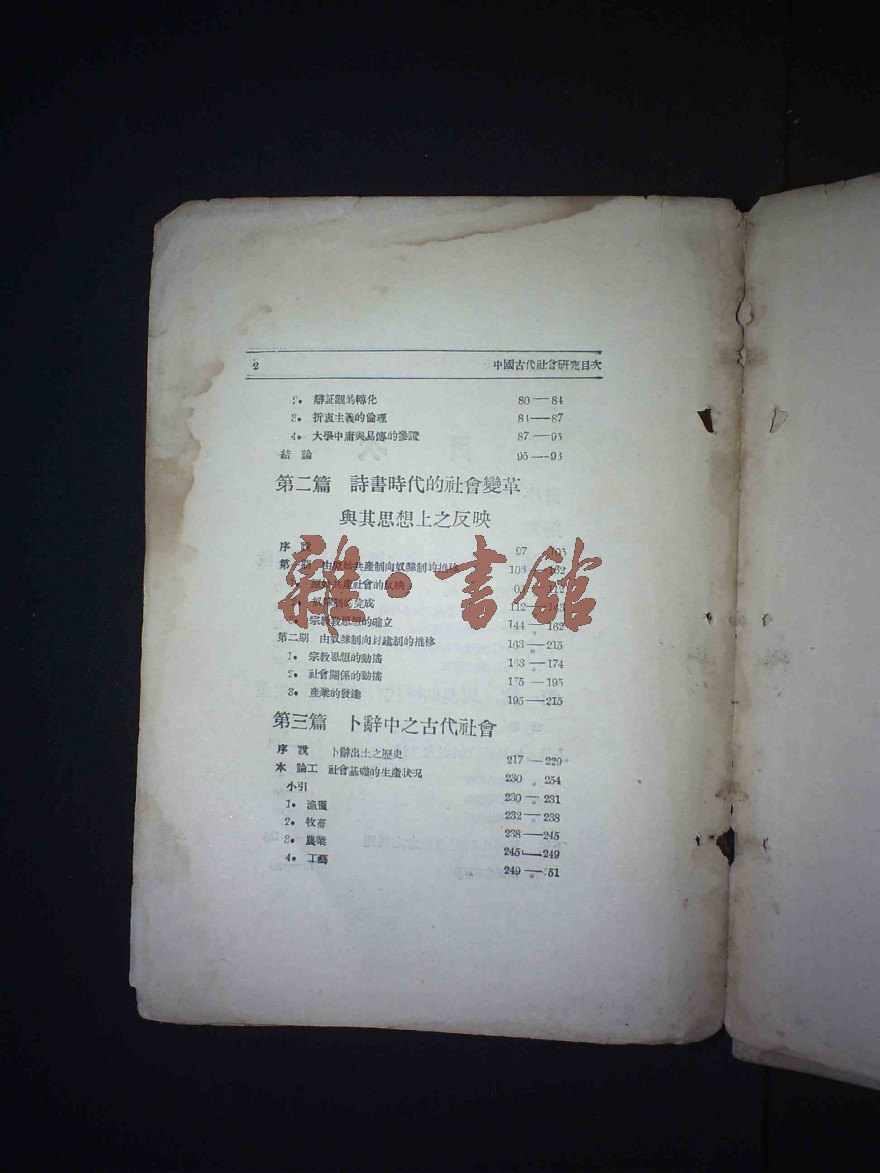 2 中國古代社會研究目次
2. 辯証觀的轉化 80—84
3. 折衷主義的倫理 84—87
4. 大學中庸與易傳的參證 87—95
結 論 95—93
第二篇 詩書時代的社會變革
與其思想上之反映
序 說 97 105
第一期 由原始共產制向奴隸制的推移 162
原始共產社會的反映 112
奴隸制的完成 112—143
宗教思想的確立 144—162
第二期 由奴隸制向封建制的推移 163—215
1. 宗教思想的動搖 163—174
2. 社會關係的動搖 175—195
3. 產業的發達 195—215
第三篇 卜辭中之古代社會
序 說 卜辭出土之歷史 217—229
本 論工 社會基礎的生產狀况 230 254
小引 230—231
1. 漁獵 232—238
2. 牧畜 238—245
3. 農業 245—249
4. 工藝 249—51
雜·書館